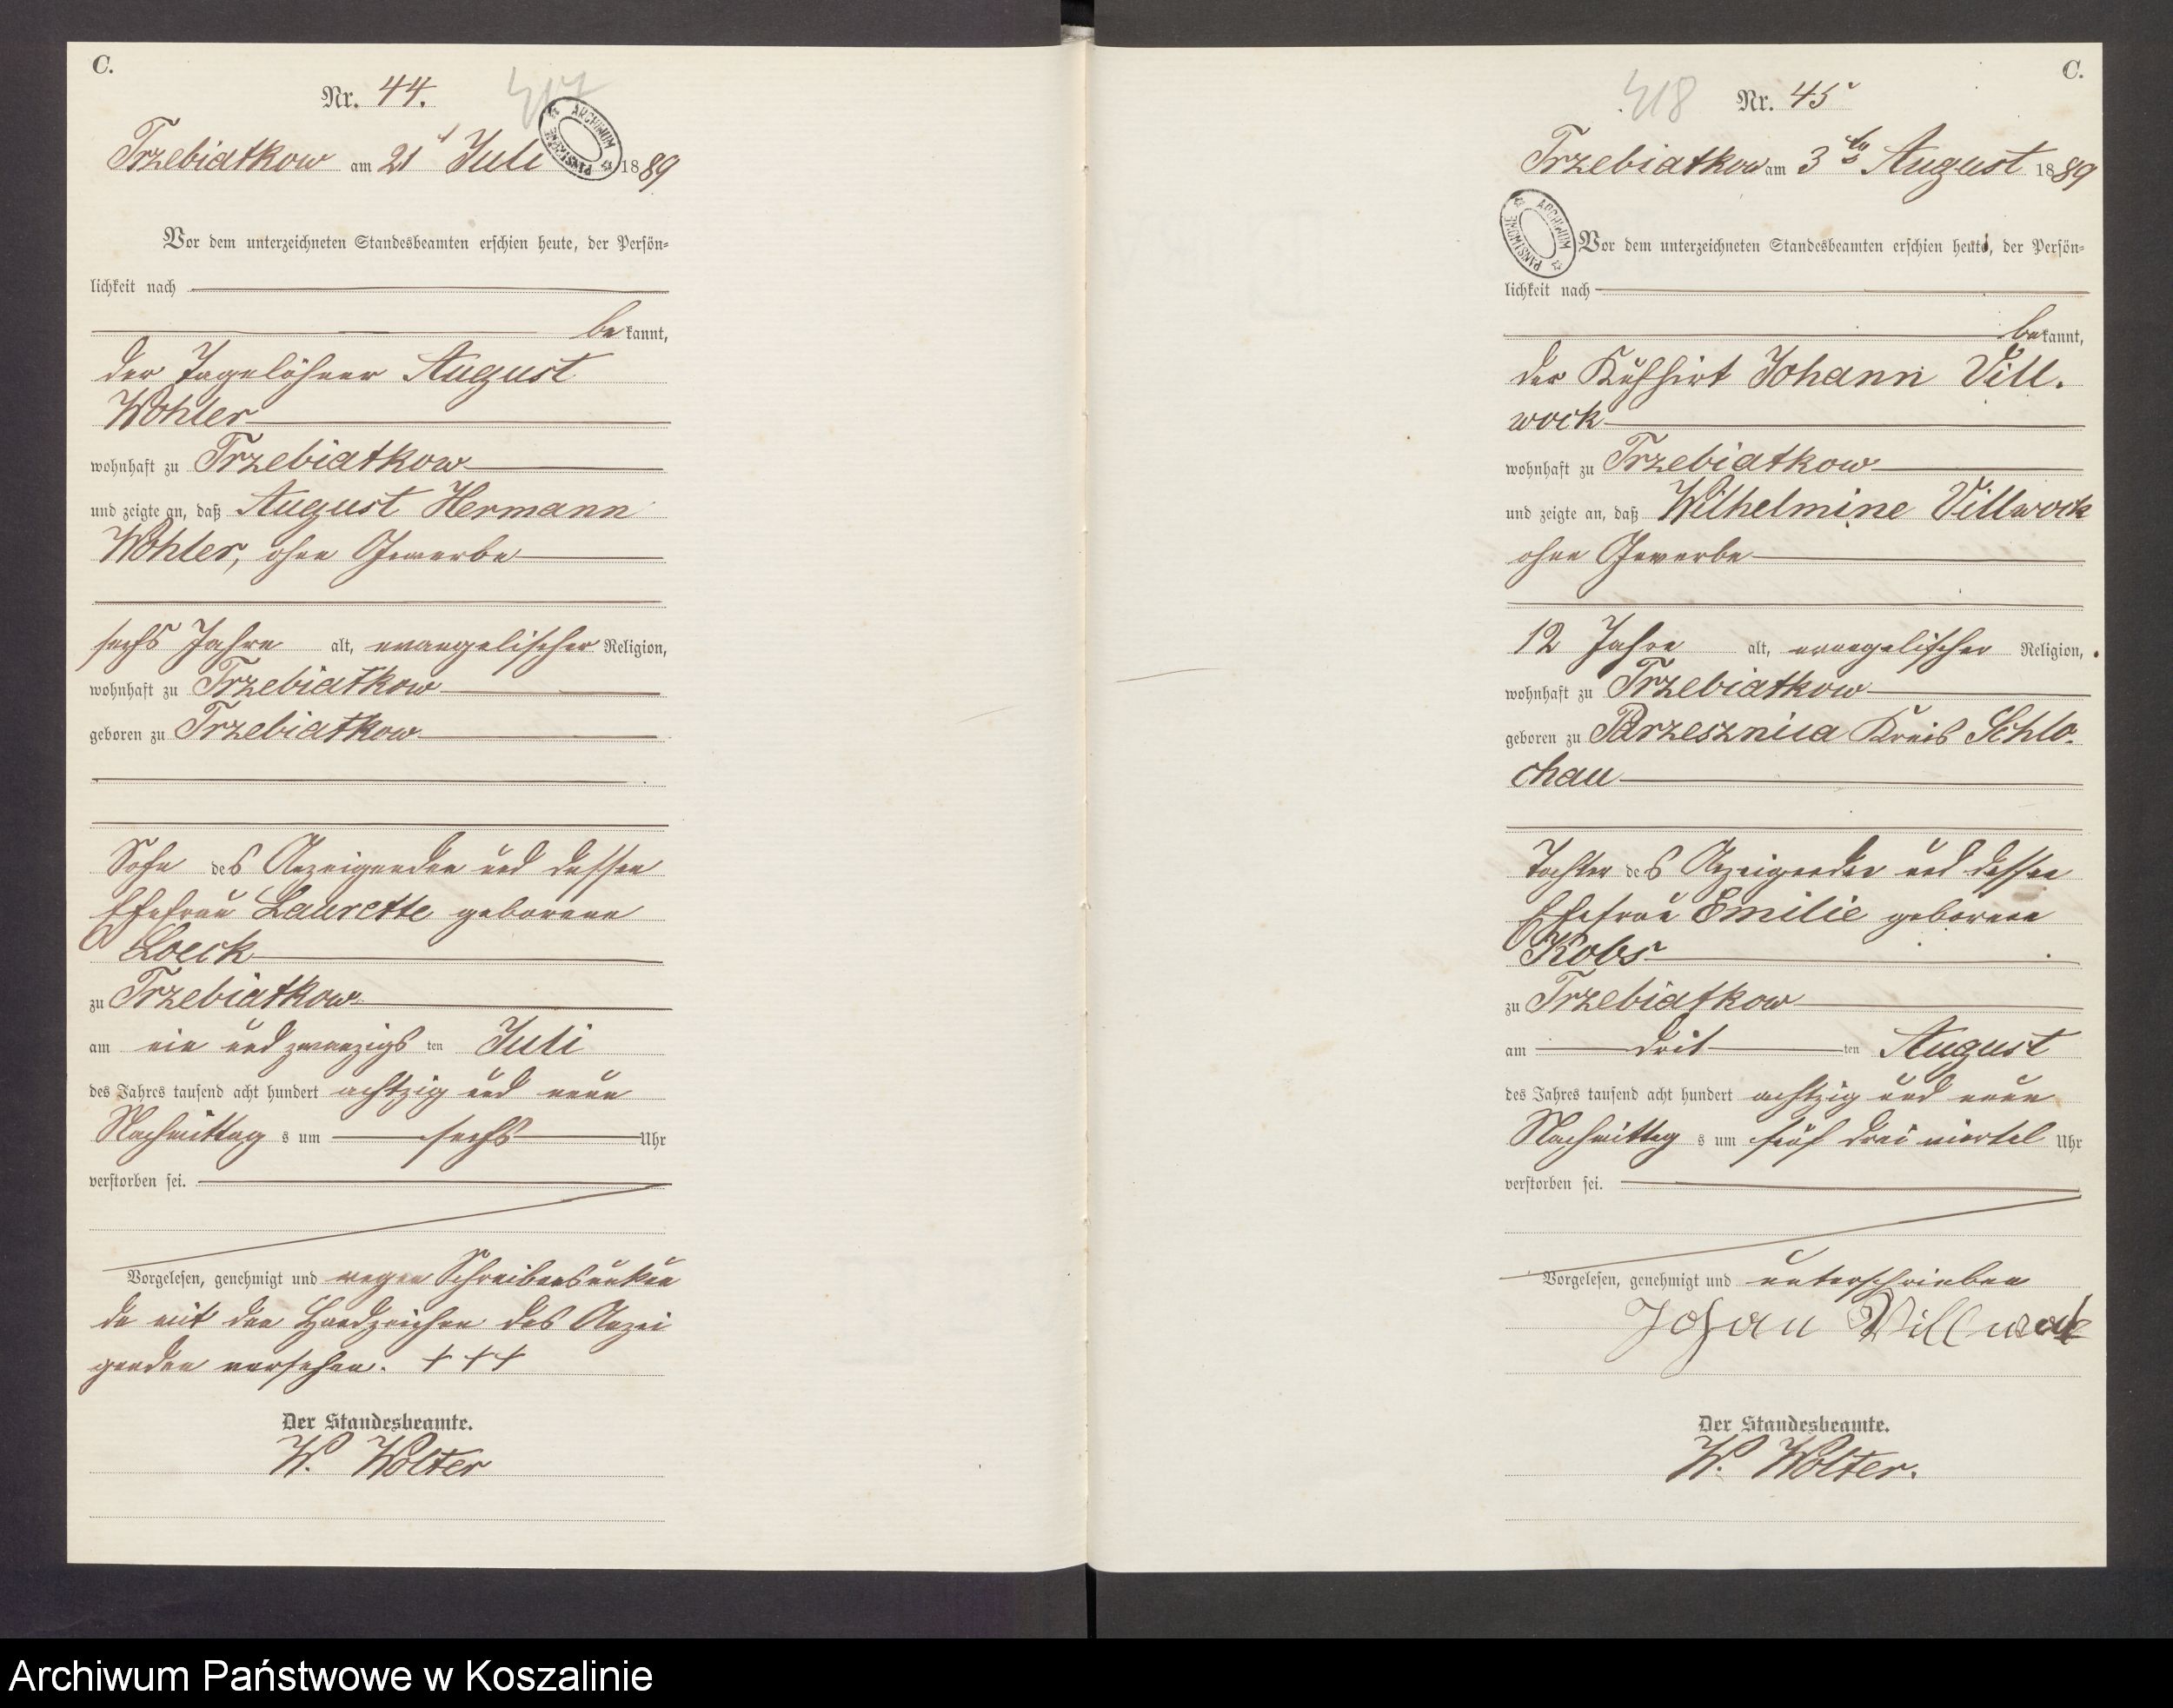 C.
Nr. 44.
417
ARCHIWUM PAŃSTWOWE
Trzebiatkow am 21 Juli 1889
Vor dem unterzeichneten Standesbeamten erschien heute, der Persön-
lichkeit nach
bekannt,
der Tagelöhner August
Wohler
wohnhaft zu Trzebiatkow
und zeigte an, daß August Hermann
Wohler, ohne Gewerbe
sechs Jahre alt, evangelischer Religion,
wohnhaft zu Trzebiatkow
geboren zu Trzebiatkow
Sohn des Anzeigenden und dessen
Ehefrau Laurette geborene
Loeck
zu Trzebiatkow
am ein und zwanzigsten Juli
des Jahres tausend acht hundert achtzig und neun
Nachmittags um sechs Uhr
verstorben sei.
Vorgelesen, genehmigt und wegen Schreibensunkun
de mit den Handzeichen des Anzei
genden versehen. +++
Der Standesbeamte.
W. Wolter
C.
418
Nr. 45
Trzebiatkow am 3ten August 1889
ARCHIWUM PAŃSTWOWE
Vor dem unterzeichneten Standesbeamten erschien heute, der Persön-
lichkeit nach
bekannt,
der Kuhhirt Johann Vill-
wock
wohnhaft zu Trzebiatkow
und zeigte an, daß Wilhelmine Villwock
ohne Gewerbe
12 Jahre alt, evangelischer Religion,
wohnhaft zu Trzebiatkow
geboren zu Brzesznica Kreis Schlo-
chau
Tochter des Anzeigenden und dessen
Ehefrau Emilie geborene
Kobs
zu Trzebiatkow
am dritten August
des Jahres tausend acht hundert achtzig und neun
Nachmittags um fünf drei viertel Uhr
verstorben sei.
Vorgelesen, genehmigt und unterschrieben
Johan Villwock
Der Standesbeamte.
W. Wolter.
Archiwum Państwowe w Koszalinie